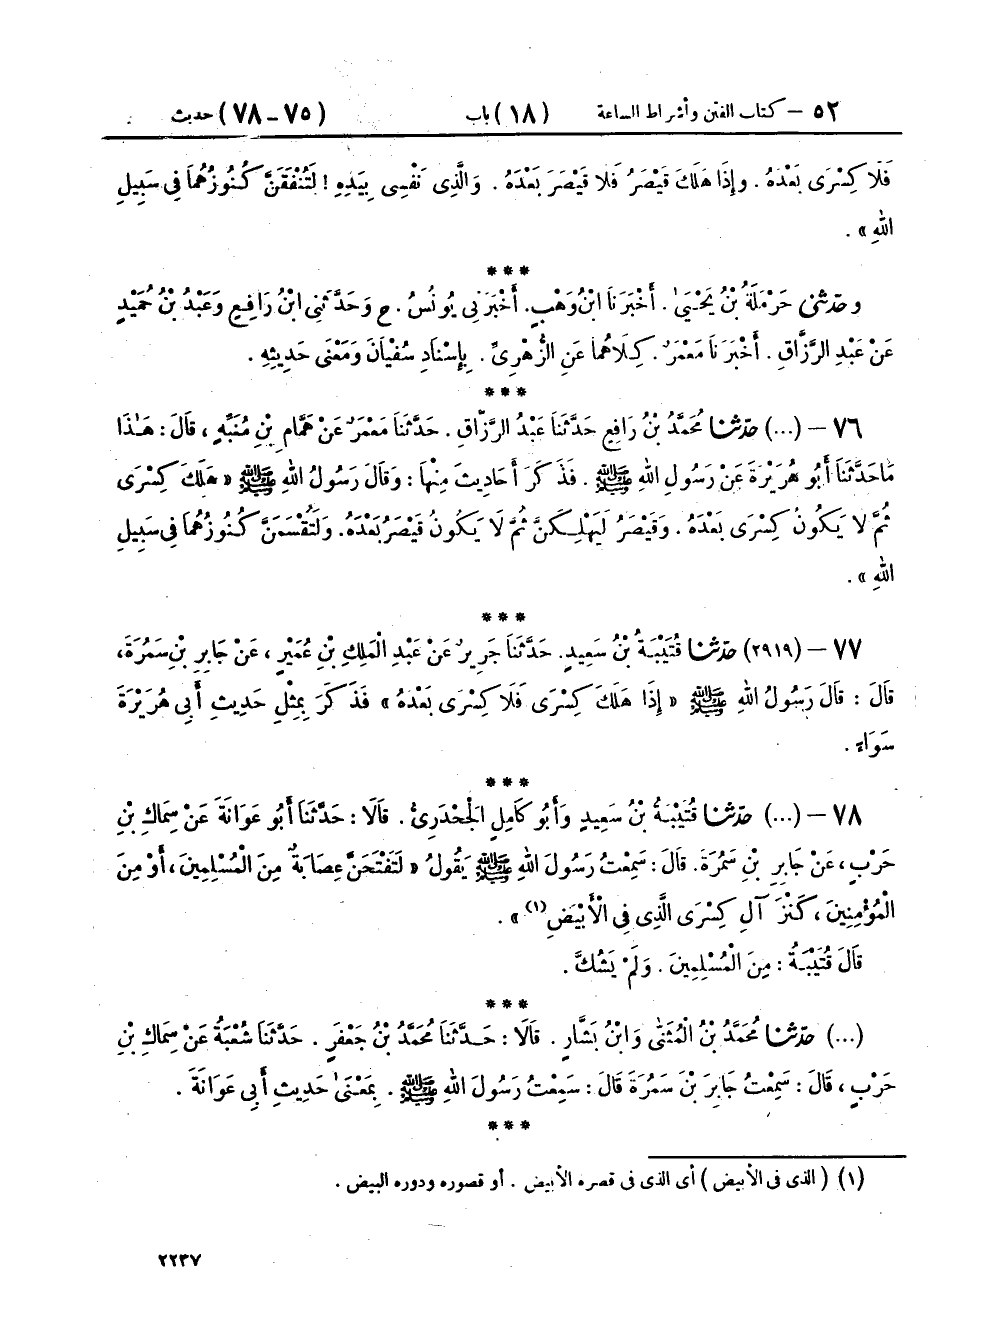 ٥٢ – كتاب الفتن وأشراط الساعة (١٨) باب (٧٥-٧٨) حديث
فَلَا كِسْرَى بَعْدَهُ . وإِذَا هَلَكَ قَيْصَرُ فَلَا قَيْصَرَ بَعْدَهُ . وَالَّذِى نَفْسِى بِيَدِهِ ! لَتُنْفَقَنَّ كُنُوزُهُمَا فِى سَبِيلِ
اللهِ » .
***
وحدّثنى حَرْمَلَةُ بْنُ يَحْيَىٰ . أَخْبَرَنَا ابْنُ وَهْبٍ . أَخْبَرَنِى يُونُسُ . ح وَحَدَّثَنِى ابْنُ رَافِعٍ وَعَبْدُ بْنُ حُمَيْدٍ
عَنْ عَبْدِ الرَّزَّاقِ . أَخْبَرَنَا مَعْمَرٌ . كِلَاهُمَا عَنِ الزُّهْرِىِّ . بِإِسْنَادِ سُفْيَانَ وَمَعْنَى حَدِيثِهِ .
***
٧٦ – (...) حدّثنا مُحَمَّدُ بْنُ رَافِعٍ حَدَّثَنَا عَبْدُ الرَّزَّاقِ . حَدَّثَنَا مَعْمَرٌ عَنْ هَمَّامِ بْنِ مُنَبِّهٍ ، قَالَ : هَٰذَا
مَاحَدَّثَنَا أَبُو هُرَيْرَةَ عَنْ رَسُولِ اللهِ ﷺ . فَذَكَرَ أَحَادِيثَ مِنْهَا : وَقَالَ رَسُولُ اللهِ ﷺ « هَلَكَ كِسْرَى
ثُمَّ لَا يَكُونُ كِسْرَى بَعْدَهُ . وَقَيْصَرُ لَيَهْلِكَنَّ ثُمَّ لَا يَكُونُ قَيْصَرُ بَعْدَهُ . وَلَتُقْسَمَنَّ كُنُوزُهُمَا فِى سَبِيلِ
اللهِ » .
***
٧٧ – (٢٩١٩) حدّثنا قُتَيْبَةُ بْنُ سَعِيدٍ . حَدَّثَنَا جَرِيرٌ عَنْ عَبْدِ الْمَلِكِ بْنِ عُمَيْرٍ ، عَنْ جَابِرِ بْنِ سَمُرَةَ ،
قَالَ : قَالَ رَسُولُ اللهِ ﷺ « إِذَا هَلَكَ كِسْرَى فَلَا كِسْرَى بَعْدَهُ » فَذَكَرَ بِمِثْلِ حَدِيثِ أَبِى هُرَيْرَةَ
سَوَاءً .
***
٧٨ – (...) حدّثنا قُتَيْبَةُ بْنُ سَعِيدٍ وَأَبُو كَامِلٍ الْجَحْدَرِىُّ . قَالَا : حَدَّثَنَا أَبُو عَوَانَةَ عَنْ سِمَاكِ بْنِ
حَرْبٍ ، عَنْ جَابِرِ بْنِ سَمُرَةَ . قَالَ : سَمِعْتُ رَسُولَ اللهِ ﷺ يَقُولُ « لَتَفْتَحَنَّ عِصَابَةٌ مِنَ الْمُسْلِمِينَ ، أَوْ مِنَ
الْمُؤْمِنِينَ ، كَنْزَ آلِ كِسْرَى الَّذِى فِى الْأَبْيَضِ (١) » .
قَالَ قُتَيْبَةُ : مِنَ الْمُسْلِمِينَ . وَلَمْ يَشُكَّ .
***
(...) حدّثنا مُحَمَّدُ بْنُ الْمُثَنَّىٰ وَابْنُ بَشَّارٍ . قَالَا : حَدَّثَنَا مُحَمَّدُ بْنُ جَعْفَرٍ . حَدَّثَنَا شُعْبَةُ عَنْ سِمَاكِ بْنِ
حَرْبٍ ، قَالَ : سَمِعْتُ جَابِرَ بْنَ سَمُرَةَ قَالَ : سَمِعْتُ رَسُولَ اللهِ ﷺ . بِمَعْنَىٰ حَدِيثِ أَبِى عَوَانَةَ .
***
(١) ( الذى فى الأبيض ) أى الذى فى قصره الأبيض . أو قصوره ودوره البيض .
٢٢٣٧